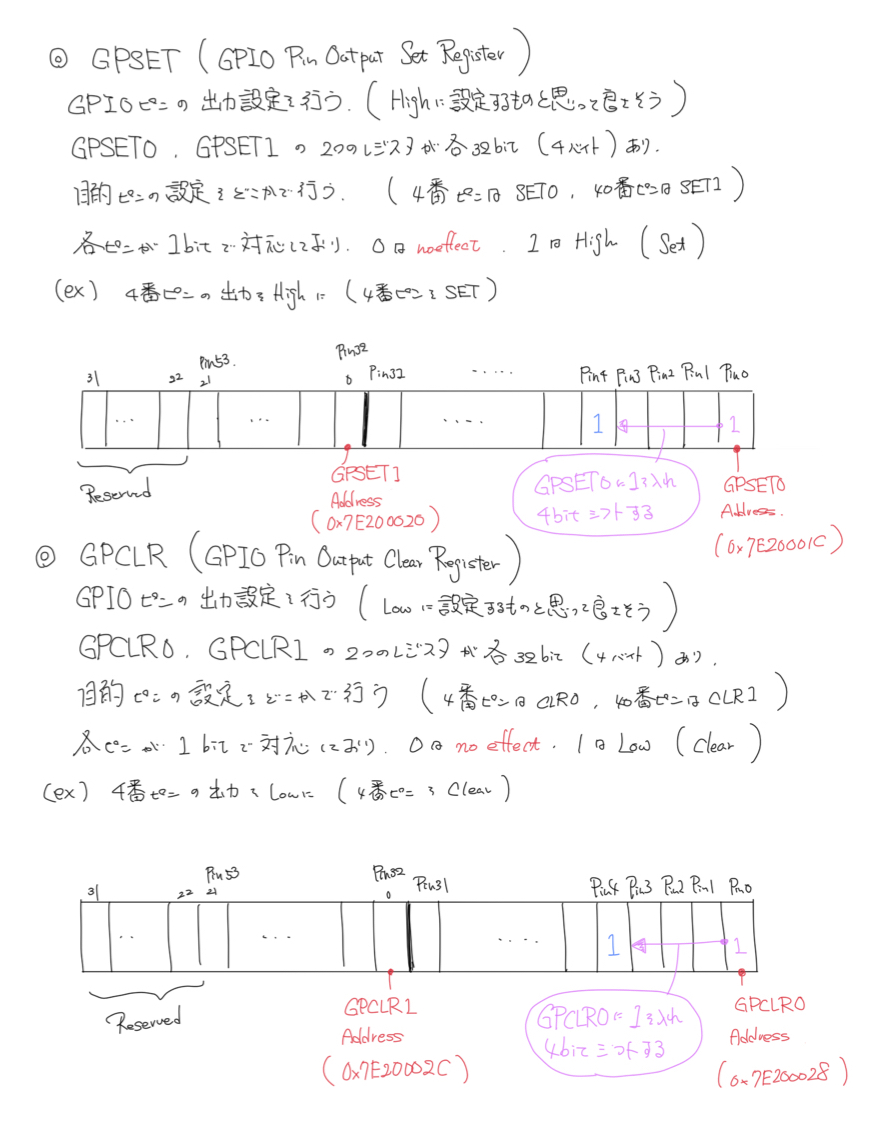 ◎ GPSET (GPIO Pin Output Set Register)
GPIOピンの出力設定を行う. (Highに設定するものと思って良さそう)
GPSET0 , GPSET1 の 2つのレジスタが各32bit (4バイト) あり.
目的ピンの設定をどこかで行う. (4番ピンは SET0 , 40番ピンは SET1)
各ピンが 1bitで対応しており. 0は no effect . 1は High (Set)
(ex) 4番ピンの出力をHighに (4番ピンを SET)
31 ... 22 Pin53. 21 ... Pin32 0 Pin31 ..... Pin4 Pin3 Pin2 Pin1 Pin0
1 1
Reserved
GPSET1
Address
(0x7E200020)
GPSET0に1を入れ
4bitシフトする
GPSET0
Address.
(0x7E20001C)
◎ GPCLR (GPIO Pin Output Clear Register)
GPIOピンの出力設定を行う (Lowに設定するものと思って良さそう)
GPCLR0 , GPCLR1 の 2つのレジスタが各32bit (4バイト) あり.
目的ピンの設定をどこかで行う (4番ピンは CLR0 , 40番ピンは CLR1)
各ピンが 1bitで対応しており. 0は no effect . 1は Low (Clear)
(ex) 4番ピンの出力をLowに (4番ピンを Clear)
31 ... 22 Pin53 21 ... Pin32 0 Pin31 ..... Pin4 Pin3 Pin2 Pin1 Pin0
1 1
Reserved
GPCLR1
Address
(0x7E20002C)
GPCLR0に1を入れ
4bitシフトする
GPCLR0
Address
(0x7E200028)